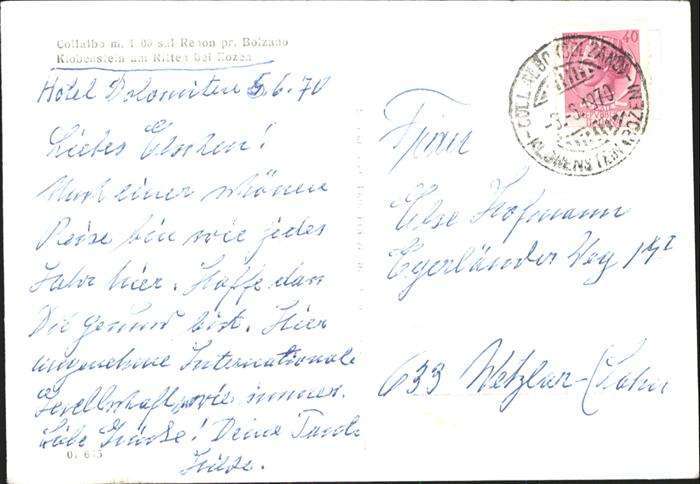 Collalbo m. 1 00 sul Renon pr. Bolzano
Klobenstein am Ritten bei Bozen
Hotel Dolomiten 5.6.70
Liebes Elschen!
Nach einer schönen
Reise bin wie jedes
Jahr hier. Hoffe dan
Du gesund bist. Hier
angenehme Internationale
Gesellschaft, wie immer.
Liebe Grüsse! Deine Tante
Hilde.
0. 6 5
40
COLLALBO (BOLZANO)
1970
KLOBENSTEIN (BOZEN)
Frau
Else Hofmann
Egerländer Weg
633 Wetzlar-Lahn